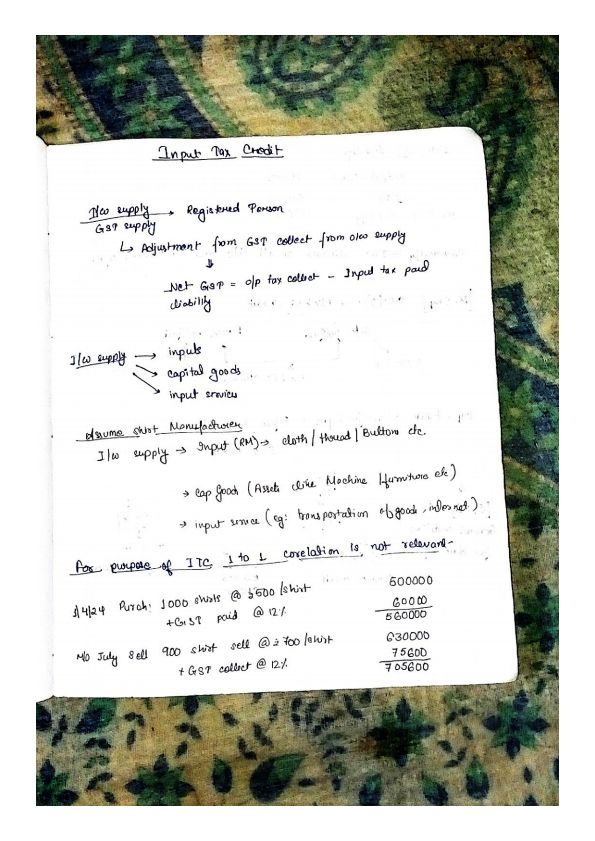 Input Tax Credit
I/w supply → Registered Person
GST supply
↳ Adjustment from GST collect from o/w supply
⇓
Net GST = o/p tax collect - Input tax paid
liability
I/w supply → inputs
→ capital goods
→ input services
Assume shirt Manufacturer
I/w supply → Input (RM) → cloth / thread / Buttons etc.
→ Cap Goods (Assets like Machine / furniture etc)
→ input service (eg: transportation of goods, internet)
For purpose of ITC, 1 to 1 corelation is not relevant-
1/4/24 Purch: 1000 shirts @ ₹500/shirt 500000
+GST paid @ 12% 60000
560000
M/o July Sell 900 shirt sell @ ₹700/shirt 630000
+ GST collect @ 12% 75600
705600